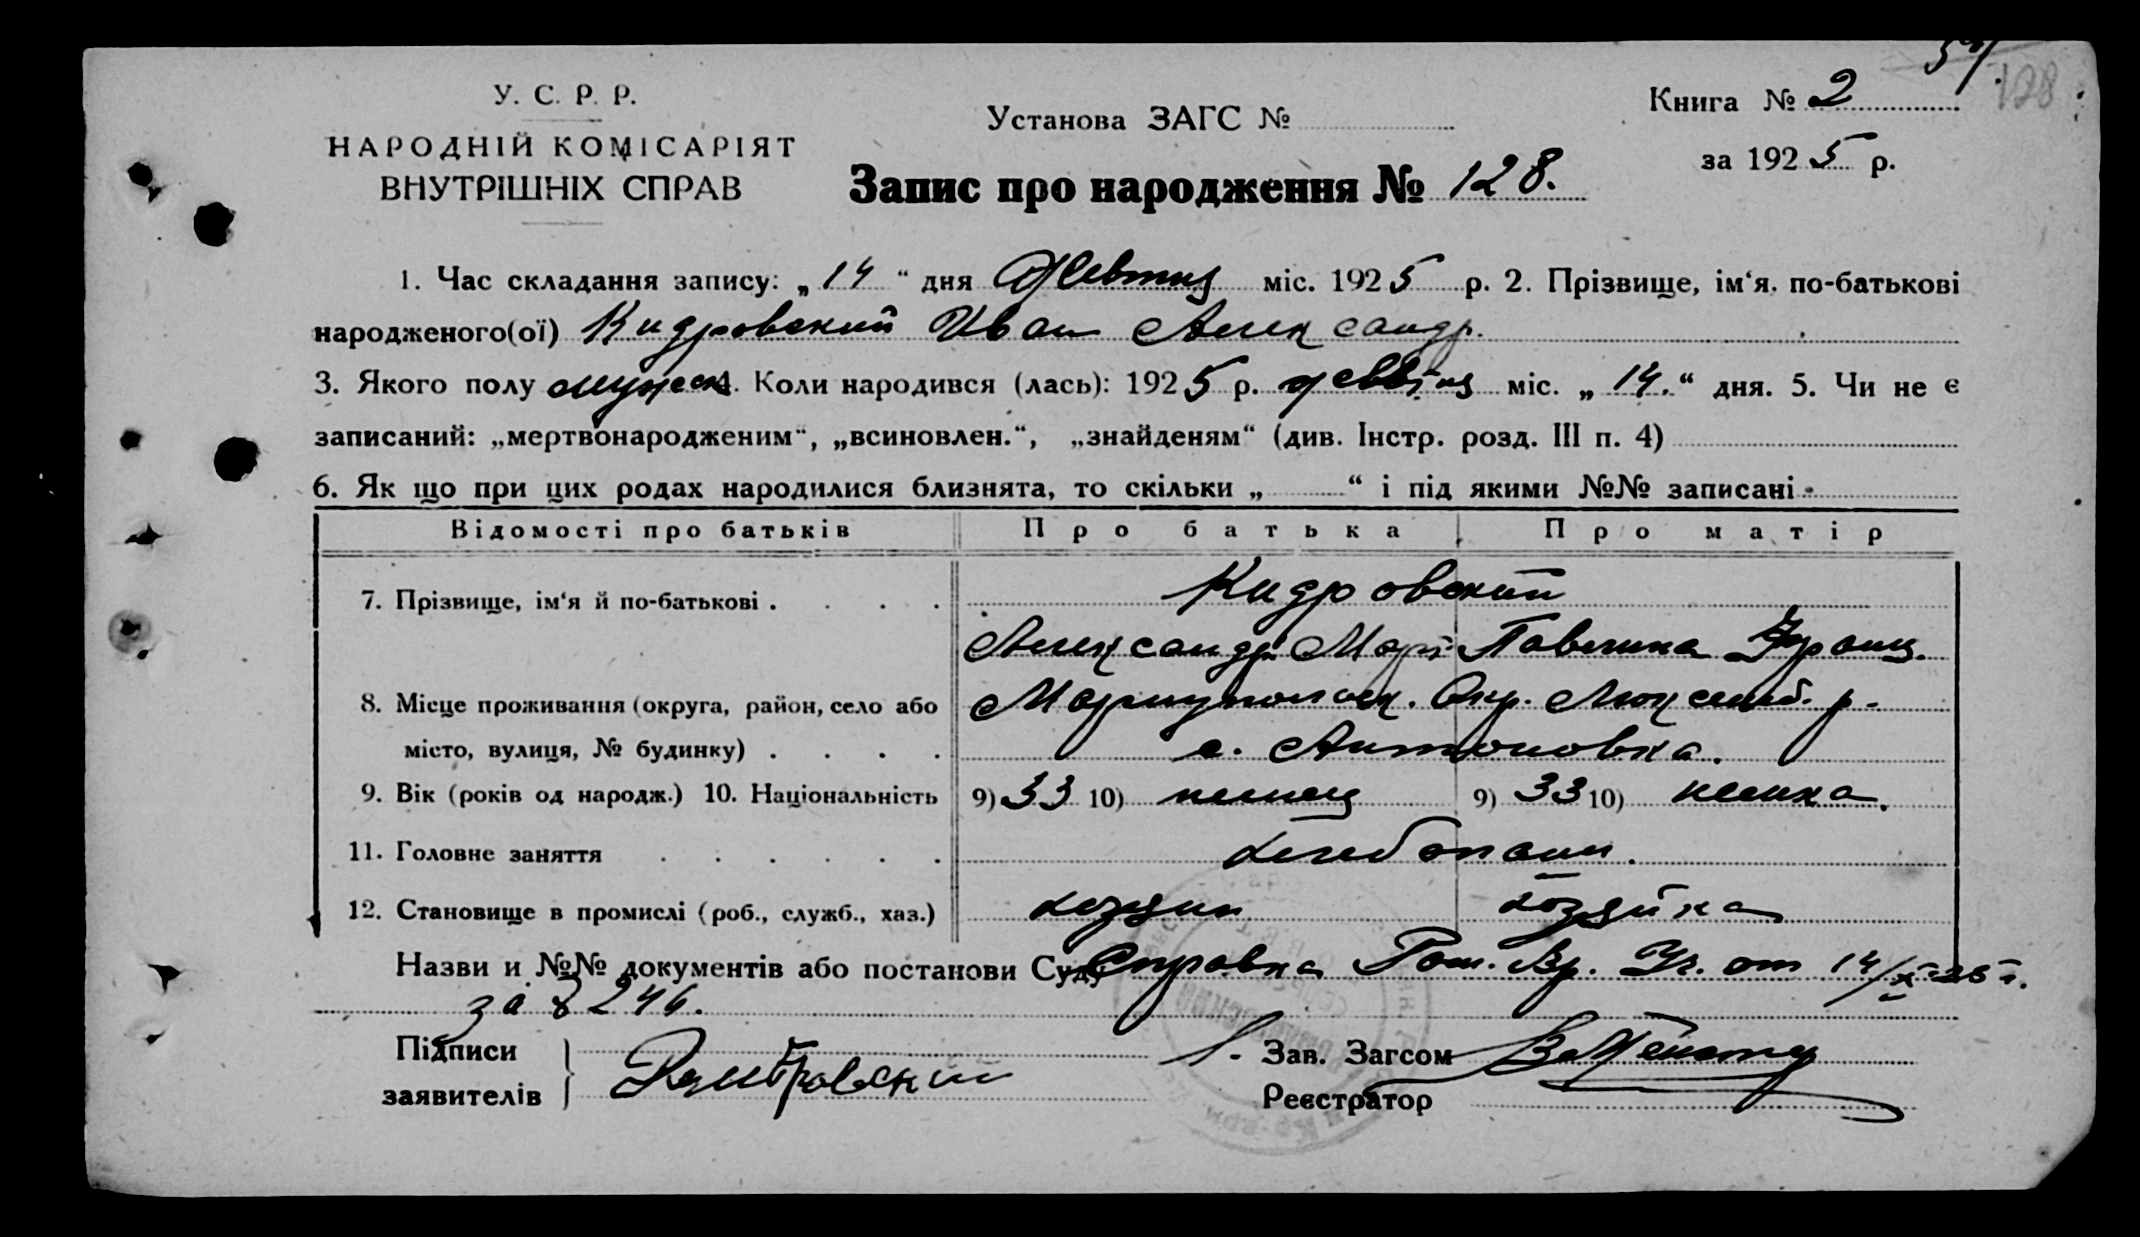 У. С. Р. Р.
НАРОДНІЙ КОМІСАРІЯТ
ВНУТРІШНІХ СПРАВ
Установа ЗАГС №
Запис про народження № 128.
Книга № 2
за 1925 р.
128
1. Час складання запису: „14“ дня Жевтня міс. 1925 р. 2. Прізвище, ім‘я, по-батькові
народженого(ої) Кидровский Иван Александр.
3. Якого полу мужеск 4. Коли народився (лась): 1925 р. міс. „14.“ дня. 5. Чи не є
записаний: „мертвонародженим“, „всиновлен.“, „знайденям“ (див. Інстр. розд. III п. 4)
6. Як що при цих родах народилися близнята, то скільки „ “ і під якими №№ записані
Відомості про батьків Про батька Про матір
7. Прізвище, ім‘я й по-батькові . . . . Кидровский
Александр Март Павлина Франц.
8. Місце проживання (округа, район, село або Мариупольск. Окр. Люксемб. р.
місто, вулиця, № будинку) . . . . с. Антоновка.
9. Вік (років од народж.) 10. Національність 9) 33 10) немец 9) 33 10) немка.
11. Головне заняття . . . . . . хлебопаш.
12. Становище в промислі (роб., служб., хаз.) хозяин хозяйка
Назви и №№ документів або постанови Суду Справка от 14/X-25 г.
за № 246.
Підписи
заявителів
Зав. Загсом
Реєстратор